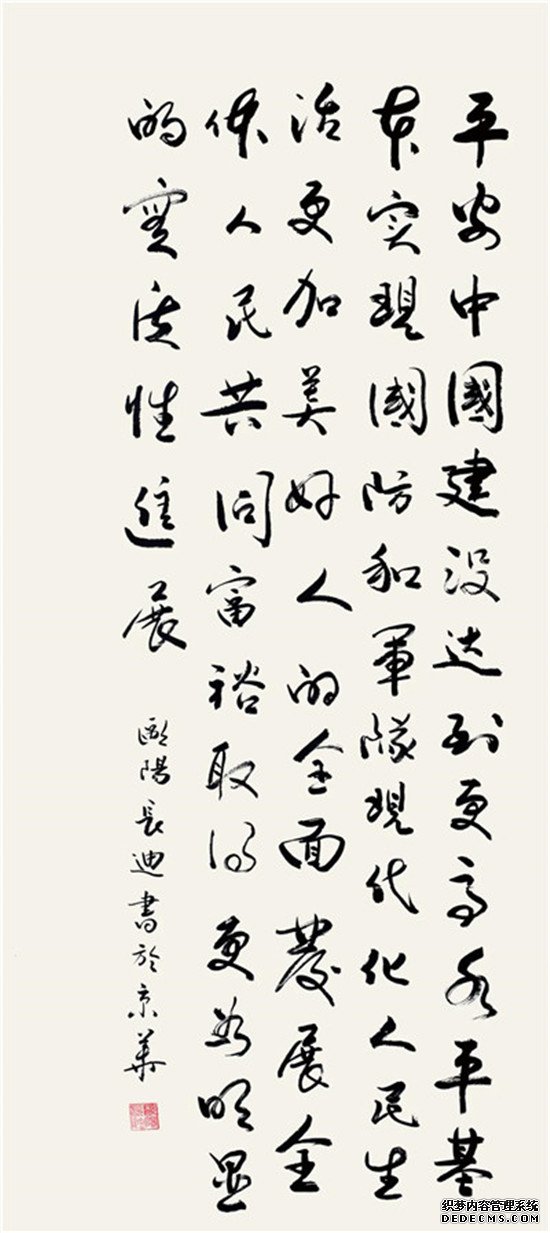 平安中國建设达到更高水平基
本实現國防和軍隊現代化人民生
活更加美好人的全面發展全
体人民共同富裕取得更为明显
的實质性進展
歐陽長迪書於京華
织梦内容管理系统
DEDECMS.COM